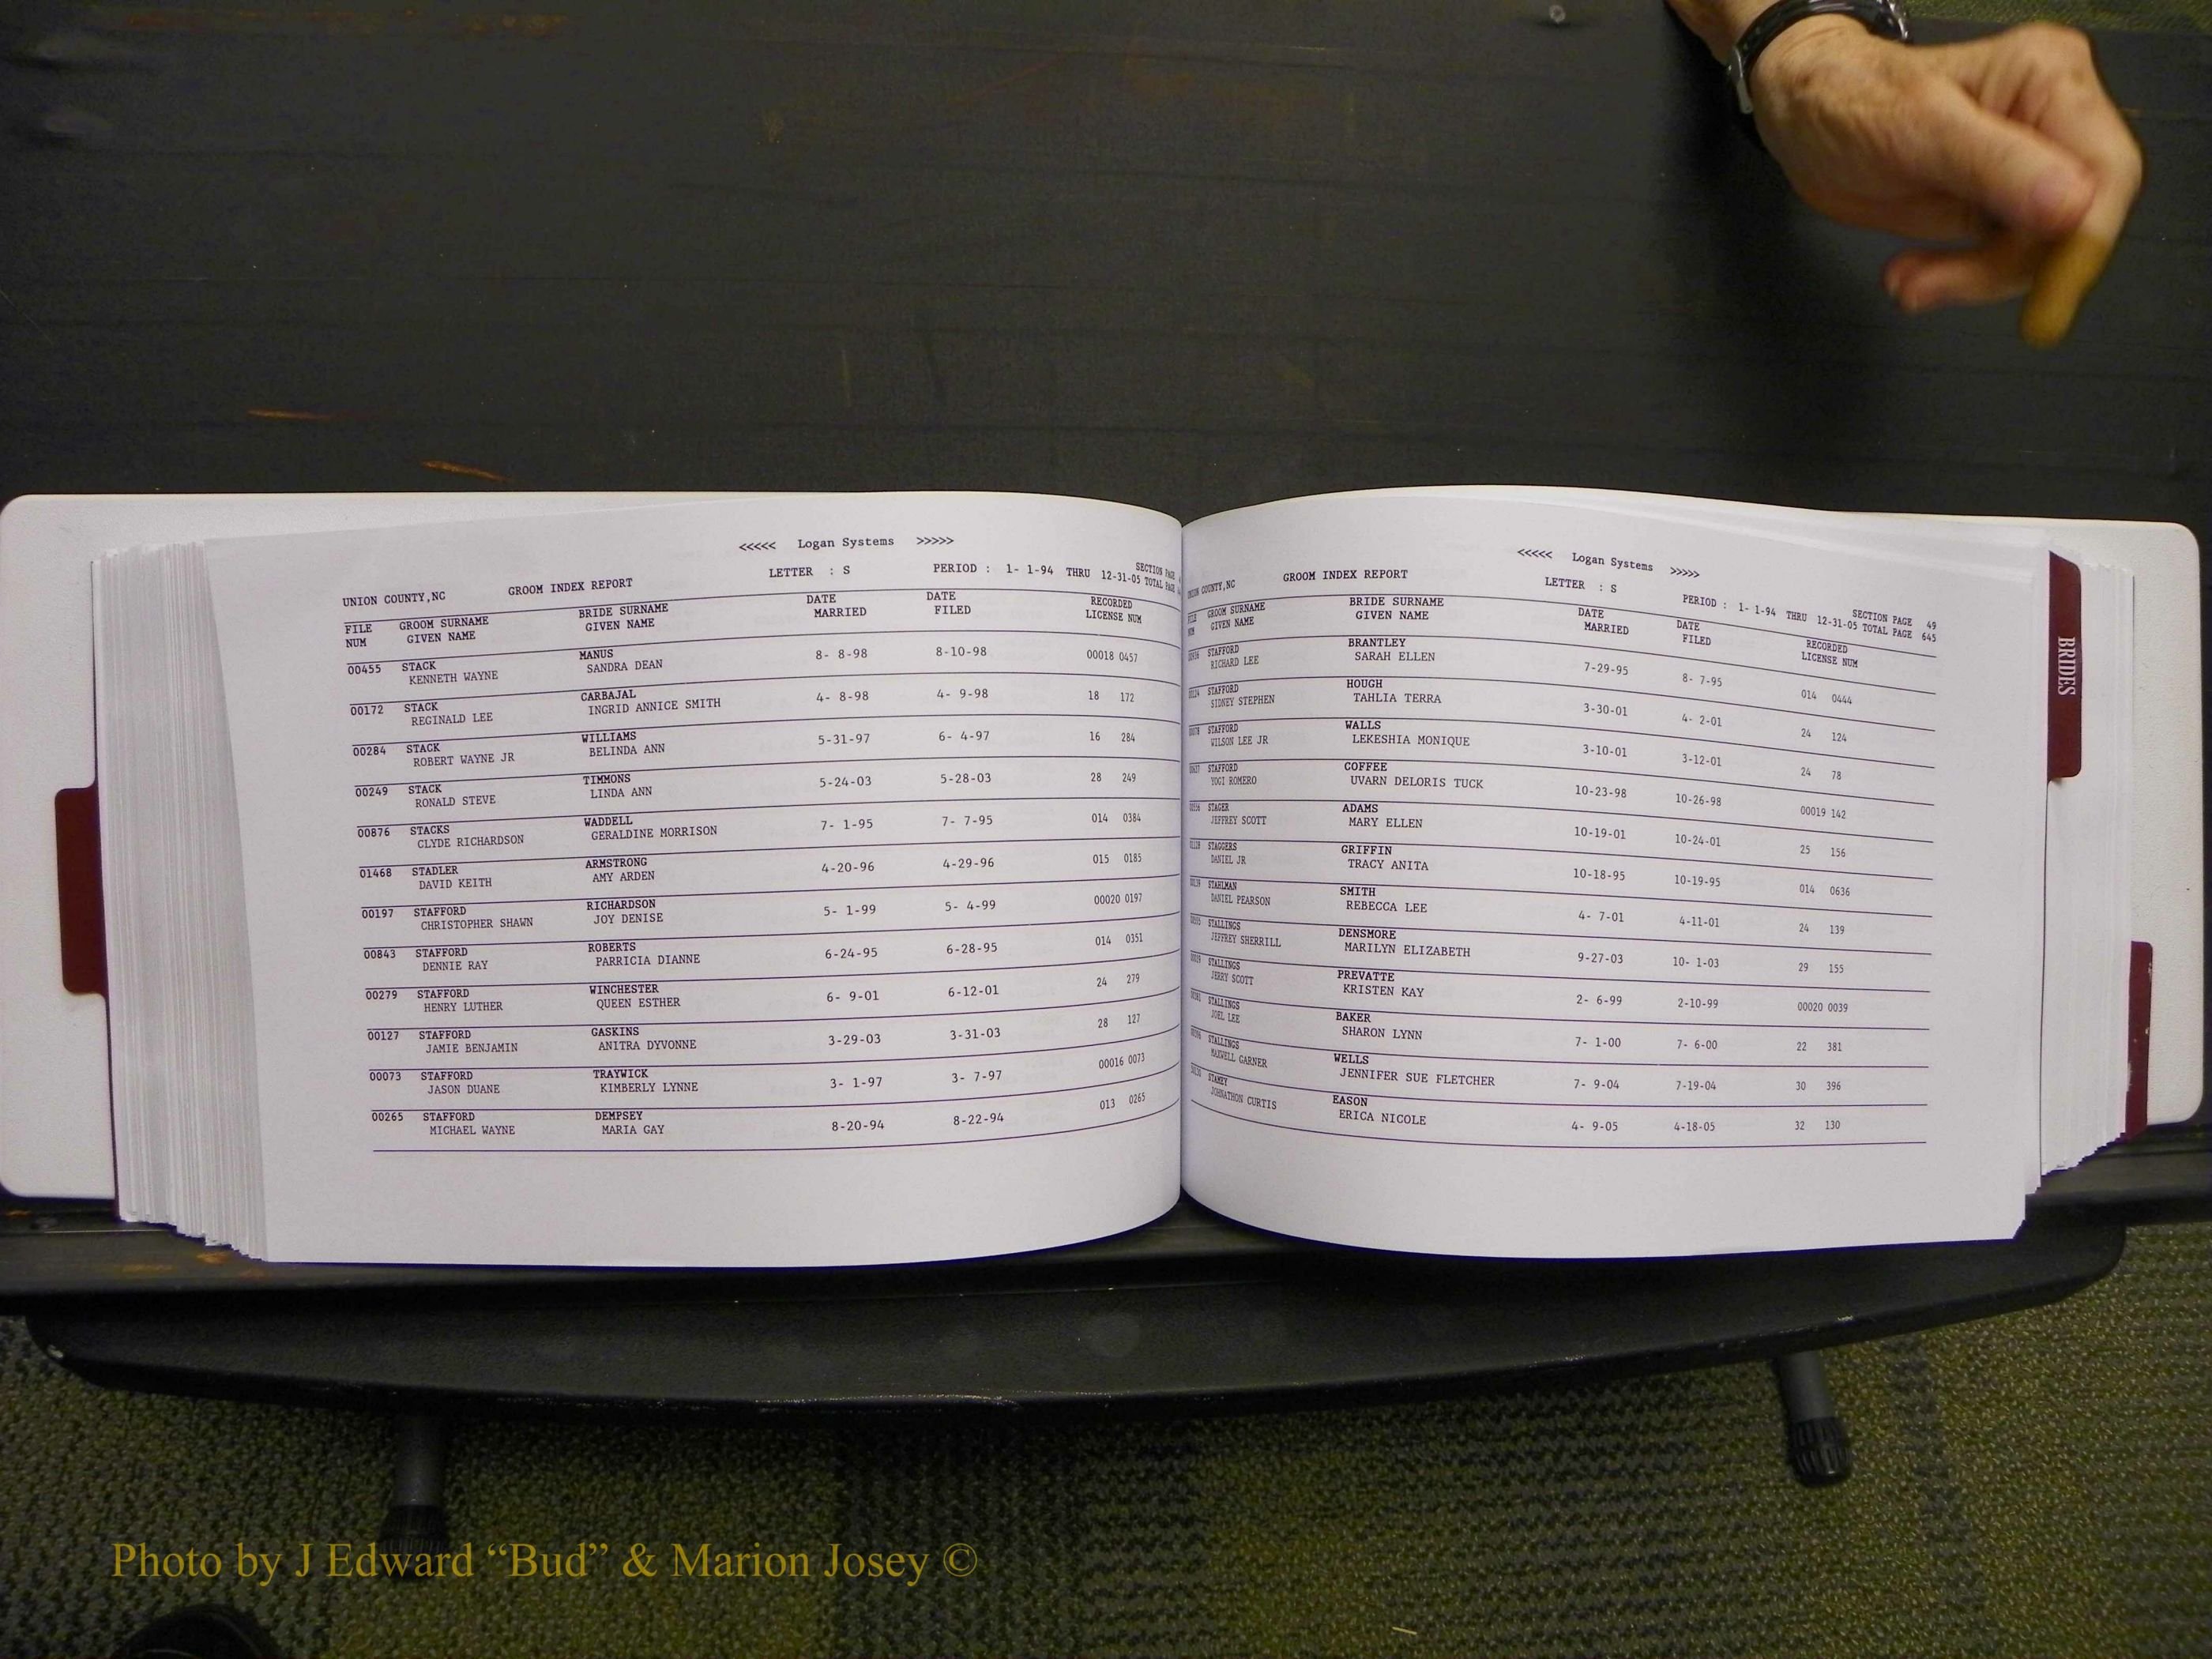 <<<<< Logan Systems >>>>>
UNION COUNTY,NC GROOM INDEX REPORT LETTER : S PERIOD : 1- 1-94 THRU 12-31-05 SECTION PAGE
TOTAL PAGE
FILE GROOM SURNAME BRIDE SURNAME DATE DATE RECORDED
NUM GIVEN NAME GIVEN NAME MARRIED FILED LICENSE NUM
00455 STACK MANUS 8- 8-98 8-10-98 00018 0457
KENNETH WAYNE SANDRA DEAN
00172 STACK CARBAJAL 4- 8-98 4- 9-98 18 172
REGINALD LEE INGRID ANNICE SMITH
00284 STACK WILLIAMS 5-31-97 6- 4-97 16 284
ROBERT WAYNE JR BELINDA ANN
00249 STACK TIMMONS 5-24-03 5-28-03 28 249
RONALD STEVE LINDA ANN
00876 STACKS WADDELL 7- 1-95 7- 7-95 014 0384
CLYDE RICHARDSON GERALDINE MORRISON
01468 STADLER ARMSTRONG 4-20-96 4-29-96 015 0185
DAVID KEITH AMY ARDEN
00197 STAFFORD RICHARDSON 5- 1-99 5- 4-99 00020 0197
CHRISTOPHER SHAWN JOY DENISE
00843 STAFFORD ROBERTS 6-24-95 6-28-95 014 0351
DENNIE RAY PARRICIA DIANNE
00279 STAFFORD WINCHESTER 6- 9-01 6-12-01 24 279
HENRY LUTHER QUEEN ESTHER
00127 STAFFORD GASKINS 3-29-03 3-31-03 28 127
JAMIE BENJAMIN ANITRA DYVONNE
00073 STAFFORD TRAYWICK 3- 1-97 3- 7-97 00016 0073
JASON DUANE KIMBERLY LYNNE
00265 STAFFORD DEMPSEY 8-20-94 8-22-94 013 0265
MICHAEL WAYNE MARIA GAY
<<<<< Logan Systems >>>>>
UNION COUNTY,NC GROOM INDEX REPORT LETTER : S PERIOD : 1- 1-94 THRU 12-31-05 SECTION PAGE 49
TOTAL PAGE 645
FILE GROOM SURNAME BRIDE SURNAME DATE DATE RECORDED
NUM GIVEN NAME GIVEN NAME MARRIED FILED LICENSE NUM
STAFFORD BRANTLEY 7-29-95 8- 7-95 014 0444
RICHARD LEE SARAH ELLEN
STAFFORD HOUGH 3-30-01 4- 2-01 24 124
SIDNEY STEPHEN TAHLIA TERRA
STAFFORD WALLS 3-10-01 3-12-01 24 78
WILSON LEE JR LEKESHIA MONIQUE
STAFFORD COFFEE 10-23-98 10-26-98 00019 142
YOGI ROMERO UVARN DELORIS TUCK
STAGER ADAMS 10-19-01 10-24-01 25 156
JEFFREY SCOTT MARY ELLEN
STAGGERS GRIFFIN 10-18-95 10-19-95 014 0636
DANIEL JR TRACY ANITA
STAHLMAN SMITH 4- 7-01 4-11-01 24 139
DANIEL PEARSON REBECCA LEE
STALLINGS DENSMORE 9-27-03 10- 1-03 29 155
JEFFREY SHERRILL MARILYN ELIZABETH
STALLINGS PREVATTE 2- 6-99 2-10-99 00020 0039
JERRY SCOTT KRISTEN KAY
STALLINGS BAKER 7- 1-00 7- 6-00 22 381
JOEL LEE SHARON LYNN
STALLINGS WELLS 7- 9-04 7-19-04 30 396
MAXWELL GARNER JENNIFER SUE FLETCHER
STAMEY EASON 4- 9-05 4-18-05 32 130
JOHNATHON CURTIS ERICA NICOLE
BRIDES
Photo by J Edward “Bud” & Marion Josey ©